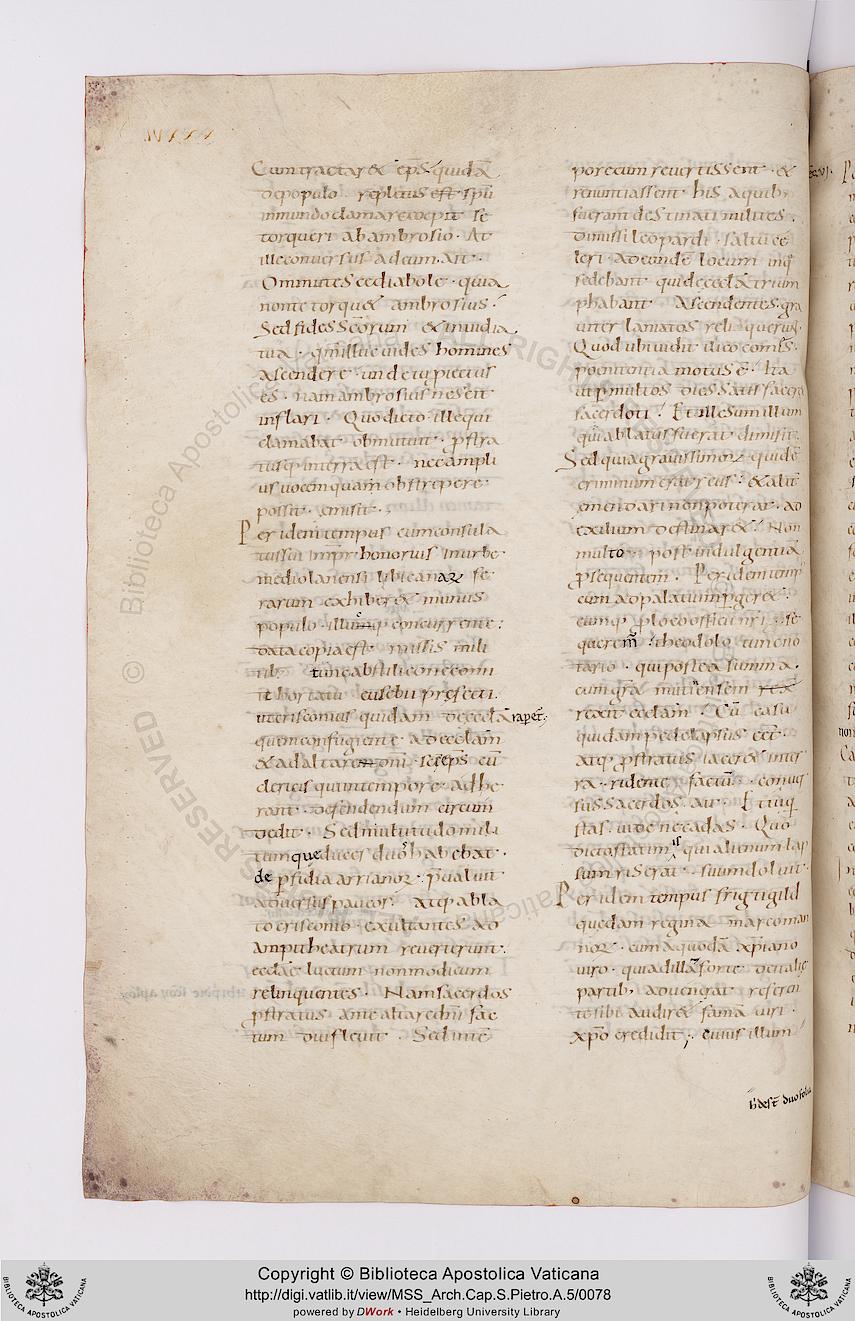 Cum tractar& ep̄s quidā
de populo repletus est sp̄u
inmundo clamare coepit se
torqueri ab ambrosio · At
ille conuersus ad eum ait ·
Ommutesce diabole · quia
non te torqu& ambrosius ·
Sed fides sc̄orum & inuidia
tua · qm̄ illuc uides homines
ascendere · unde tu p̄iectus
es · nam ambrosius nescit
inflari · Quo dicto · ille qui
clamabat obmutuit · pstra
tusq; in terra est · nec ampli
us uocem quam obstrepere
possit · emisit ·
Per idem tempus cum consula
tus sui imp̄r honorius in urbe
mediolanensi libicarum fe
rarum exhiber& munus
populo · illuc concurrente ·
data copia est missis mili
tib; tunc ab stilicone comi
te hortatu eusebii prefecti ·
ut crisconius quidam de eccla raper&
quem confugiente ad ecclam
& ad altare dni · sc̄s ep̄s cū
clericis qui in tempore adhe
rant · defendendum circum
dedit · Sed multitudo mili
tum que duces suos habebat ·
de pfidia arrianorum · pualuit
aduersus paucos · atq; abla
to crisconio · exultantes ad
ampitheatrum reuerterunt ·
ecclae luctum non modicum
relinquentes · Nam sacerdos
pstratus ante altare dni fac
tum diu fleuit · Sed inte
pore cum reuertissent · &
renuntiassent his a quib;
fuerant destinati milites ·
dimissi leopardi · saltu ce
leri · ad eundē locum in q̄
sedebant qui de eccla trium
phabant Ascendentes · gra
uiter laniatos reliquerunt ·
Quod ubi uidit stilico comes ·
poenitentia motus ē · Ita
ut p multos dies satisface&
sacerdoti · Et illesum illum
qui ablatus fuerat dimisit ·
Sed quia grauissimorum quidē
criminum erat reus · & alit
emendari non poterat · ad
exilium destinar& · Non
multo post indulgentiā
psequentem · Per idem temp
cum ad palatium perger& ·
eumq; p loco officii nr̄i se
querem̄ · theodolo tunc no
tario · qui postea summa ·
cum gra mutinensem
rexit ecclam · Cū casu
quidam pede lapsus ess& ·
atq; pstratus iacer& in ter
ra · ridente factū · conuer
sus sacerdos ait · Et tu q̄
stas · uide ne cadas · Quo
dicto statim is qui alienum lap
sum riserat · suum doluit ·
Per idem tempus frigtigild
quedam regina marcoman
norum · cum a quodā xp̄iano
uiro · qui ad illā forte de italie
partib; aduenerat referen
te sibi audir& famā uiri ·
xp̄o credidit ; cuius illum
h̄ desT̄ duo folia
Copyright © Biblioteca Apostolica Vaticana
http://digi.vatlib.it/view/MSS_Arch.Cap.S.Pietro.A.5/0078
powered by DWork • Heidelberg University Library